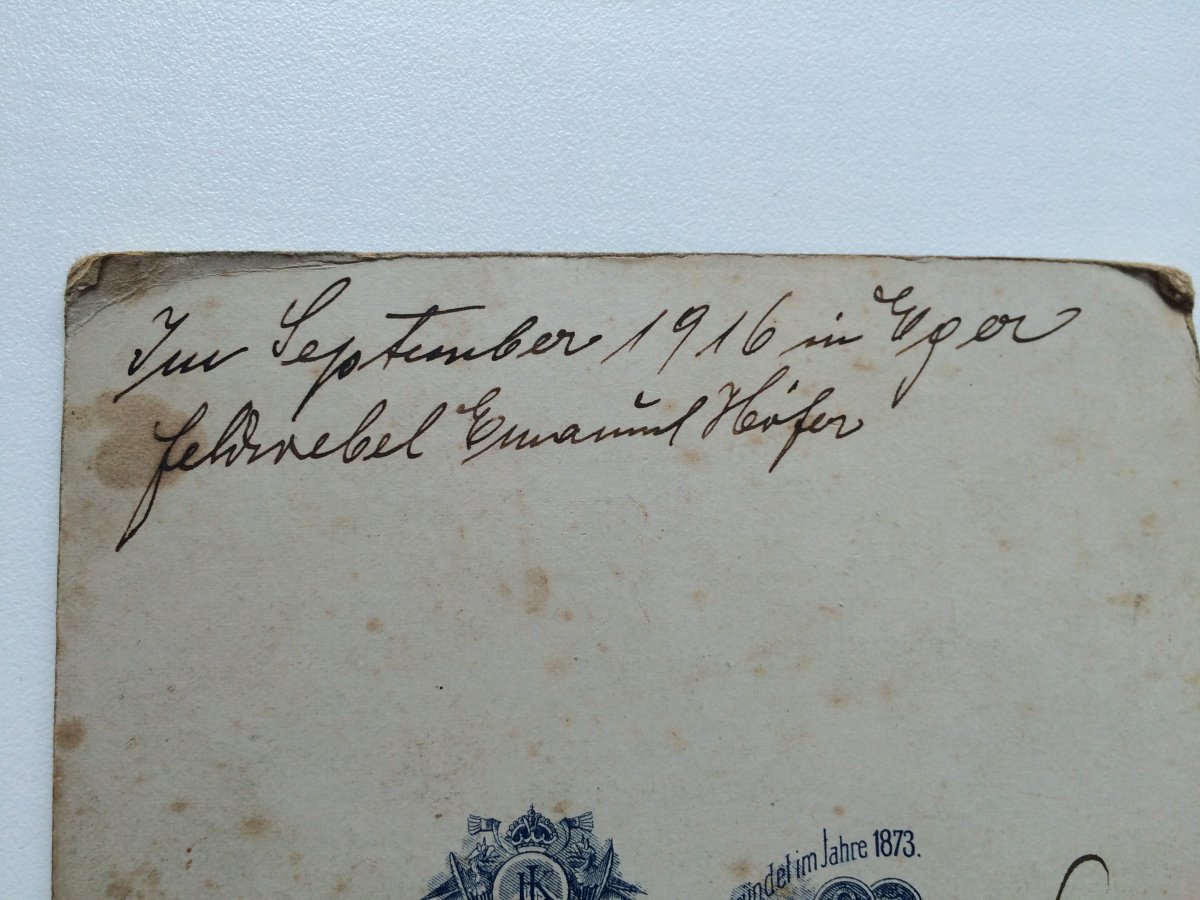 Im September 1916 in Eger
Feldwebel Emanuel Höfer
gründet im Jahre 1873.